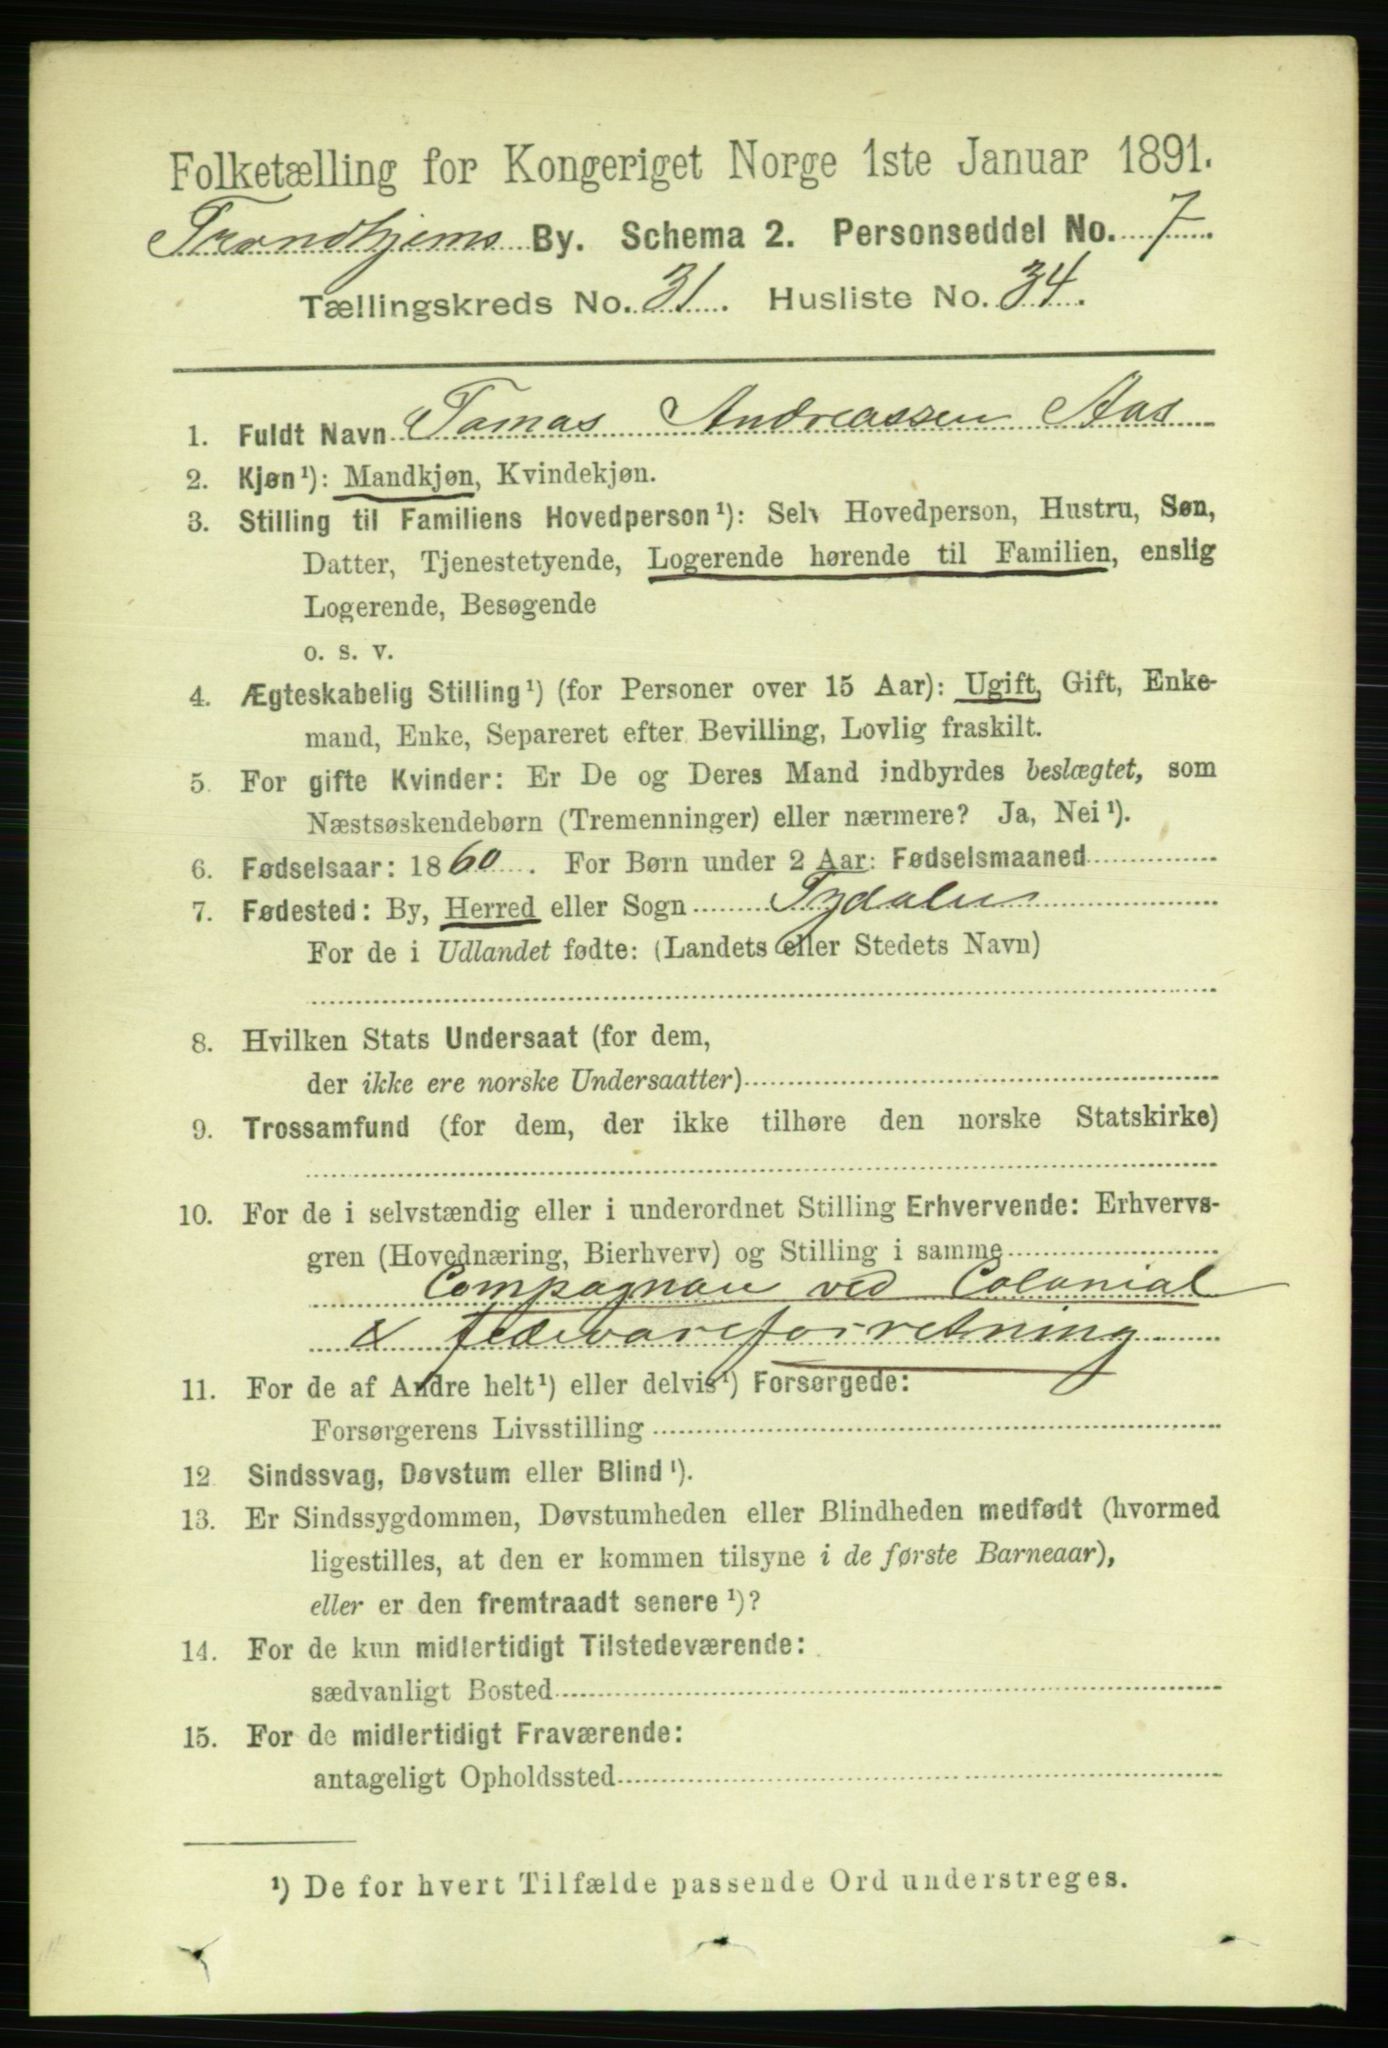 Folketælling for Kongeriget Norge 1ste Januar 1891.
Trondhjems By. Schema 2. Personseddel No. 7.
Tællingskreds No. 31. Husliste No. 34.
1. Fuldt Navn Tomas Andreassen Aas
2. Kjøn¹): Mandkjøn, Kvindekjøn.
3. Stilling til Familiens Hovedperson¹): Selv Hovedperson, Hustru, Søn,
Datter, Tjenestetyende, Logerende hørende til Familien, enslig
Logerende, Besøgende
o. s. v.
4. Ægteskabelig Stilling¹) (for Personer over 15 Aar): Ugift, Gift, Enke-
mand, Enke, Separeret efter Bevilling, Lovlig fraskilt.
5. For gifte Kvinder: Er De og Deres Mand indbyrdes beslægtet, som
Næstsøskendebørn (Tremenninger) eller nærmere? Ja, Nei¹).
6. Fødselsaar: 1860. For Børn under 2 Aar: Fødselsmaaned
7. Fødested: By, Herred eller Sogn Tydalen
For de i Udlandet fødte: (Landets eller Stedets Navn)
8. Hvilken Stats Undersaat (for dem,
der ikke ere norske Undersaatter)
9. Trossamfund (for dem, der ikke tilhøre den norske Statskirke)
10. For de i selvstændig eller i underordnet Stilling Erhvervende: Erhvervs-
gren (Hovednæring, Bierhverv) og Stilling i samme
Compagnon ved Colonial
& fedevareforretning
11. For de af Andre helt¹) eller delvis¹) Forsørgede:
Forsørgerens Livsstilling
12. Sindssvag, Døvstum eller Blind¹).
13. Er Sindssygdommen, Døvstumheden eller Blindheden medfødt (hvormed
ligestilles, at den er kommen tilsyne i de første Barneaar),
eller er den fremtraadt senere¹)?
14. For de kun midlertidigt Tilstedeværende:
sædvanligt Bosted
15. For de midlertidigt Fraværende:
antageligt Opholdssted
¹) De for hvert Tilfælde passende Ord understreges.